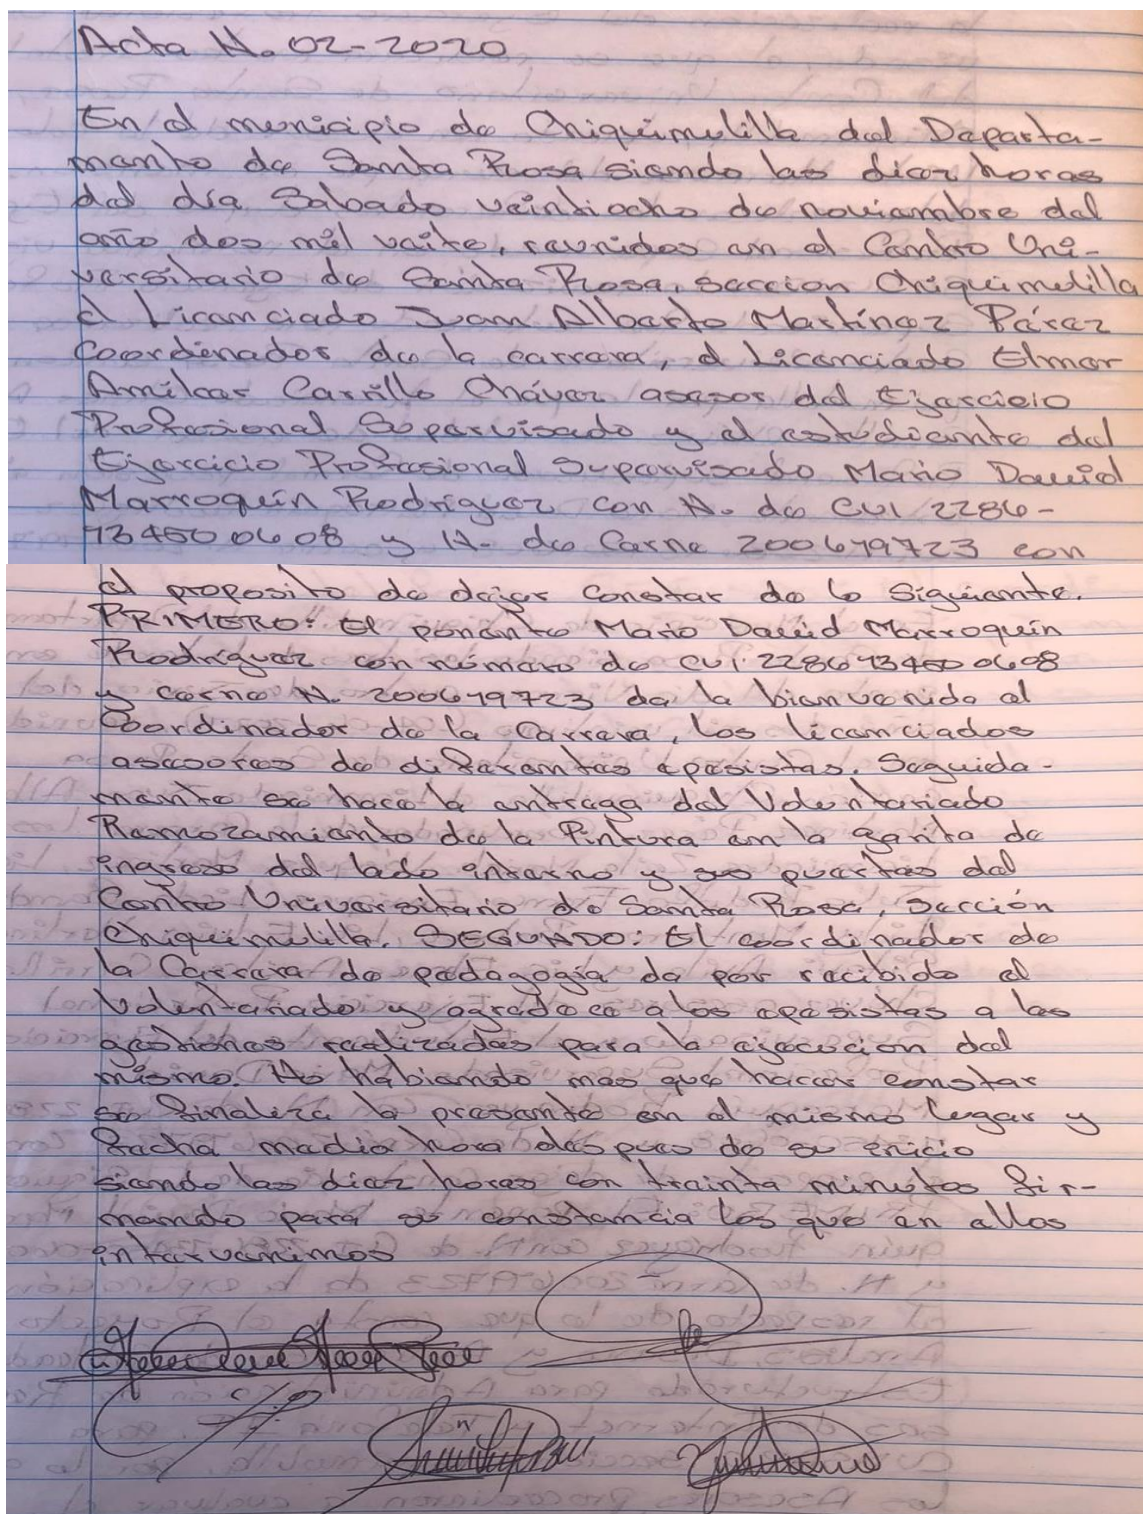 Acta N. 02-2020
En el municipio de Chiquimulilla del Departa-
mento de Santa Rosa siendo las diez horas
del día Sabado veintiocho de noviembre del
año dos mil vaite, reunidos en el Centro Uni-
versitario de Santa Rosa, seccion Chiquimulilla
el Licenciado Juan Alberto Martínez Pérez
Coordinador de la carrera, el Licenciado Elmer
Amilcar Carrillo Chávez asesor del Ejercicio
Profesional Supervisado y el estudiante del
Ejercicio Profesional Supervisado Mario David
Marroquín Rodríguez con N. de CUI 2286-
934500608 y N. de Carne 200679723 con
el proposito de dejar constar de lo siguiente.
PRIMERO: El ponente Mario David Marroquín
Rodríguez con número de CUI 2286934500608
y carne N. 200679723 da la bienvenida al
Coordinador de la Carrera, los licenciados
asesores de diferentes epesistas. Seguida-
mente se hace la entrega del Voluntariado
Remozamiento de la Pintura en la garita de
ingreso del lado interno y sus puertas del
Centro Universitario de Santa Rosa, Sección
Chiquimulilla. SEGUNDO: El coordinador de
la Carrera de pedagogía da por recibido el
Voluntariado y agradece a los epesistas a las
gestiones realizadas para la ejecución del
mismo. No habiendo mas que hacer constar
se finaliza la presente en el mismo lugar y
fecha media hora despues de su inicio
siendo las diez horas con treinta minutos fir-
mando para su constancia los que en ellos
intervenimos